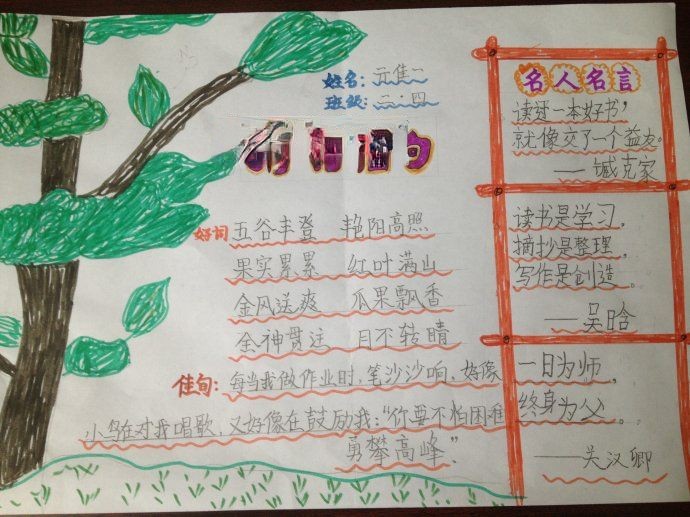 姓名：元隹一
班级：二·四
好词 五谷丰登 艳阳高照
果实累累 红叶满山
金风送爽 瓜果飘香
全神贯注 目不转晴
佳句：每当我做作业时，笔沙沙响，好像
小鸟在对我唱歌，又好像在鼓励我：“你要不怕困难
勇攀高峰”。
名人名言
读过一本好书，
就像交了一个益友。
——臧克家
读书是学习，
摘抄是整理，
写作是创造。
——吴晗
一日为师，
终身为父。
——关汉卿